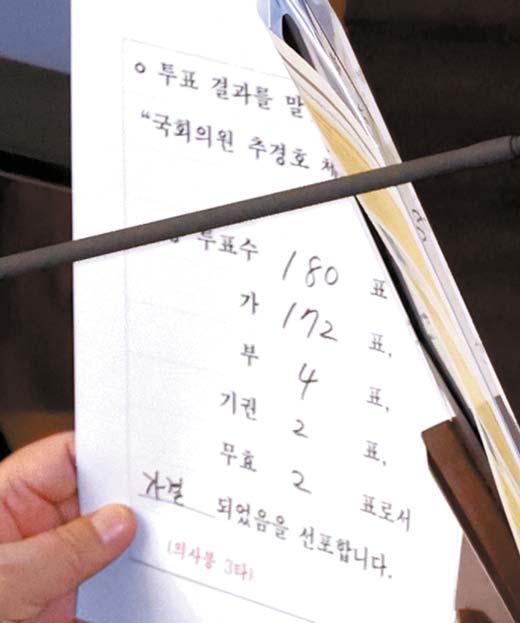 ㅇ 투표 결과를 말
"국회의원 추경호 체
투표수 180 표
가 172 표,
부 4 표,
기권 2 표,
무효 2 표로서
가결 되었음을 선포합니다.
(의사봉 3타)